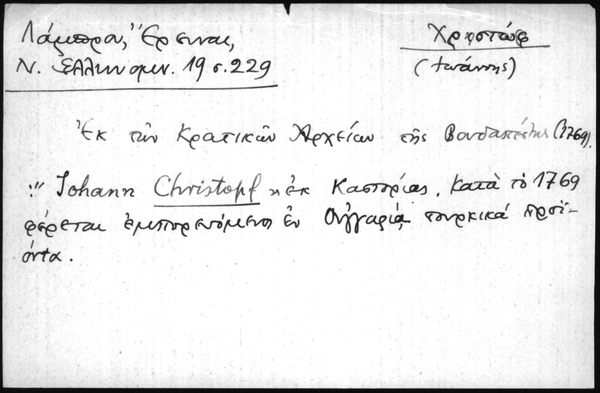 Λάμπρου, Ἔρευναι,
Ν. Ἑλληνομν. 19 σ. 229
Χριστώφ
(Ἰωάννης)
Ἐκ τῶν Κρατικῶν Ἀρχείων τῆς Βουδαπέστης (1769).
:" Johann Christopf ἐκ Καστορίας. Κατὰ τὸ 1769
φέρεται ἐμπορευόμενος ἐν Οὑγγαρίᾳ τουρκικά προϊ-
όντα.